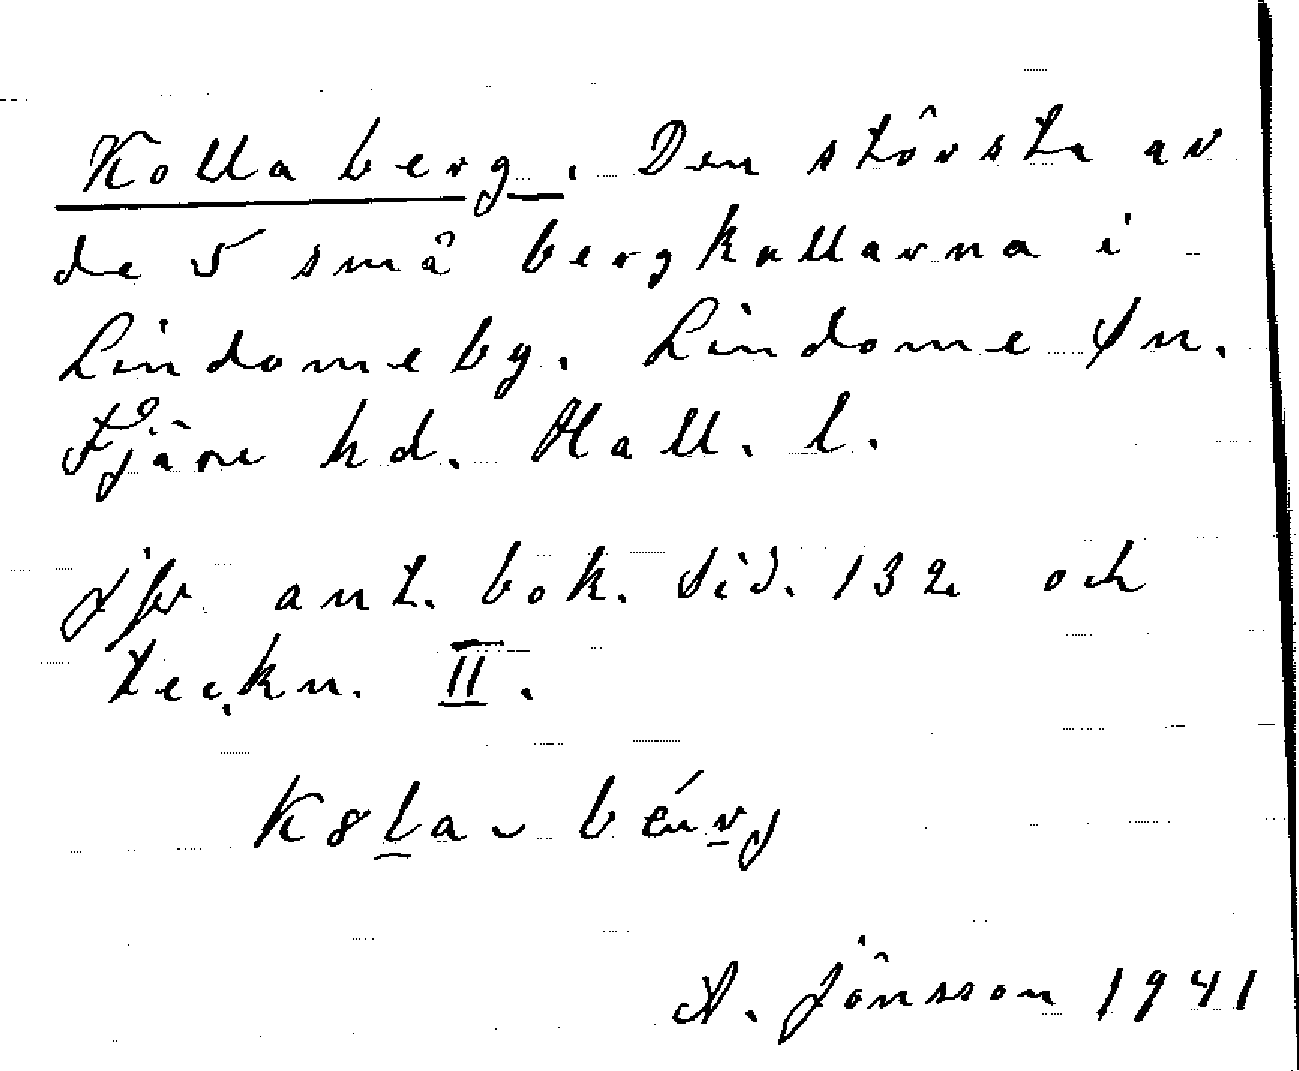 Kolla berg. Den största av
de 5 små bergkullarna i
Lindome by. Lindome sn.
Fjäre hd. Hall. l.
Jfr ant. bok. sid. 132 och
teckn. II.
A. Jönsson 1941